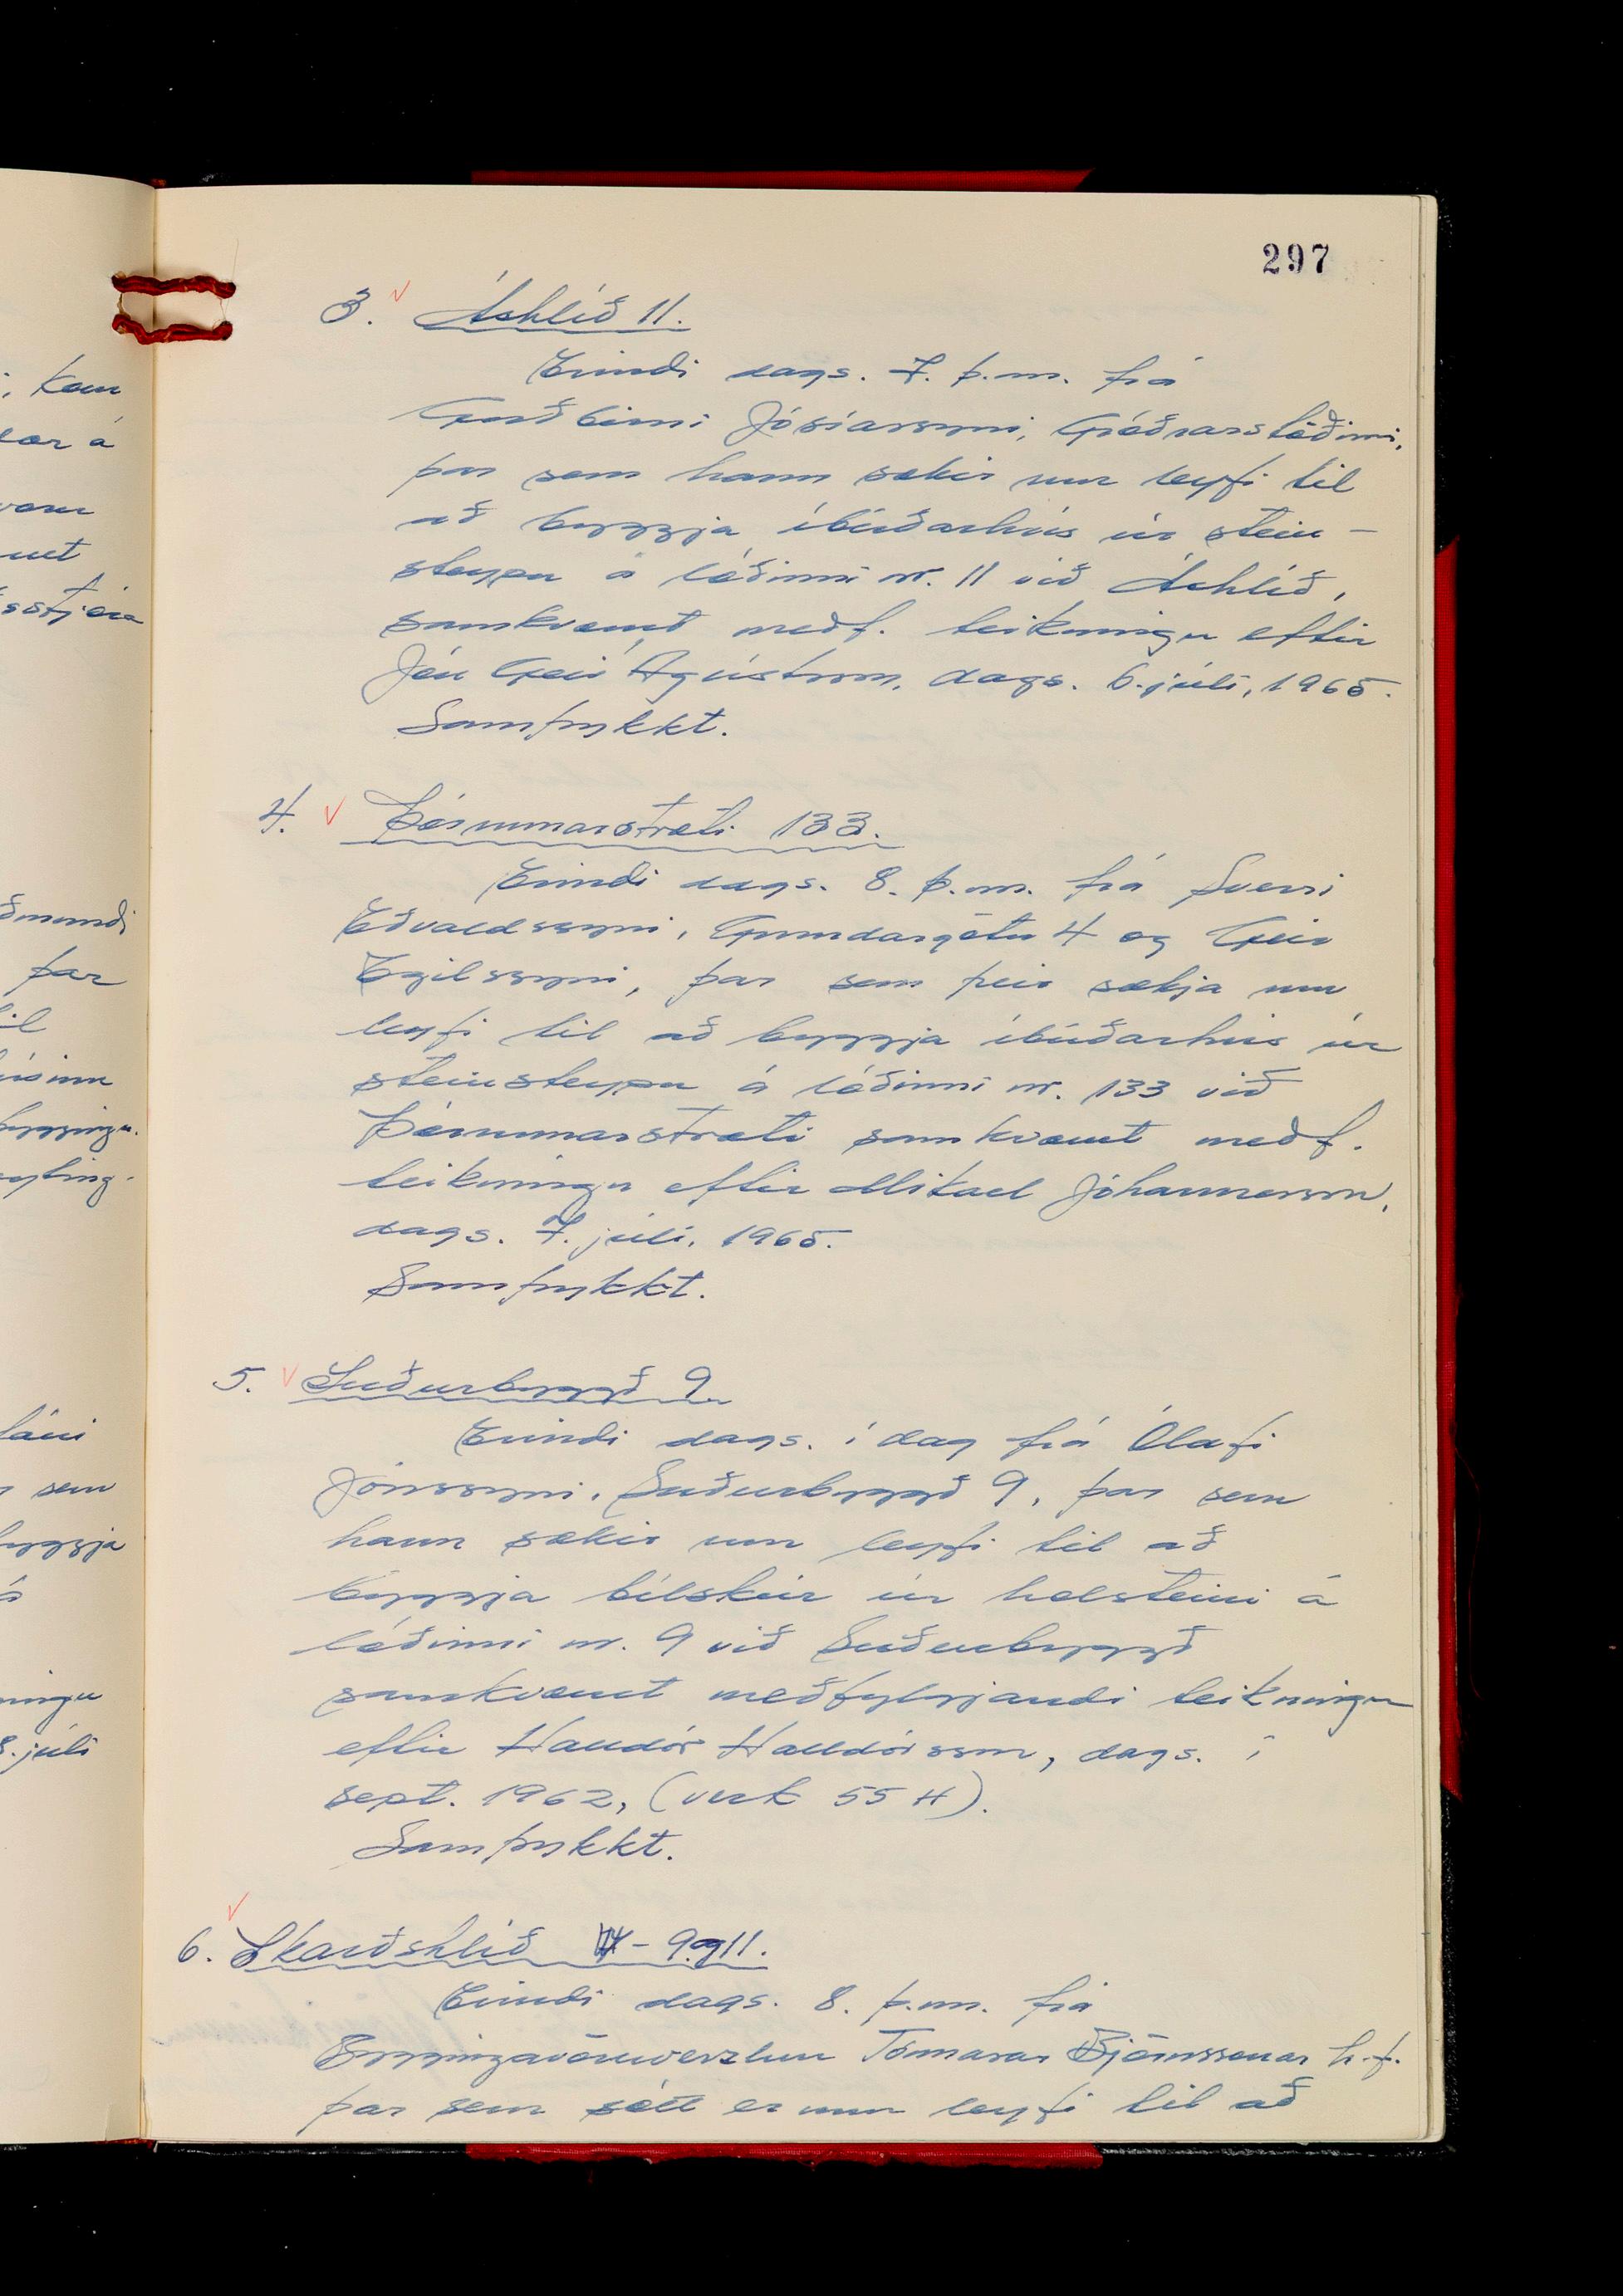 i, kom
lar á
vom
met
sstjóra
ðmundi
þar
il
úsinu
byggingu.
eyting-
láni
n sem
byggja
á
ningu
8. júlí
297
3. Áshlíð 11.
Erindi dags. 7. þ.m. frá
Guðbirni Jósíassyni, Gróðrarstöðinni,
þar sem hann sækir um leyfi til
að byggja íbúðarhús úr stein-
steypu á lóðinni nr. 11 við Áshlíð,
samkvæmt meðf. teikningu eftir
Jón Geir Ágústsson, dags. 6. júlí, 1965.
Samþykkt.
4. Þórunnarstræti 133.
Erindi dags. 8. þ.m. frá Sverri
Eðvaldssyni, Grundargötu 4 og Geir
Egilssyni, þar sem þeir sækja um
leyfi til að byggja íbúðarhús úr
steinsteypu á lóðinni nr. 133 við
Þórunnarstræti samkvæmt meðf.
teikningu eftir Mikael Jóhannesson,
dags. 7. júlí, 1965.
Samþykkt.
5. Suðurbyggð 9.
Erindi dags. í dag frá Ólafi
Jónssyni, Suðurbyggð 9, þar sem
hann sækir um leyfi til að
byggja bílskúr úr holsteini á
lóðinni nr. 9 við Suðurbyggð
samkvæmt meðfylgjandi teikningu
eftir Halldór Halldórsson, dags. í
sept. 1962, (verk 55 H).
Samþykkt.
6. Skarðshlíð - 9og11.
Erindi dags. 8. þ.m. frá
Byggingavöruverzlun Tómasar Björnssonar h.f.
þar sem sótt er um leyfi til að